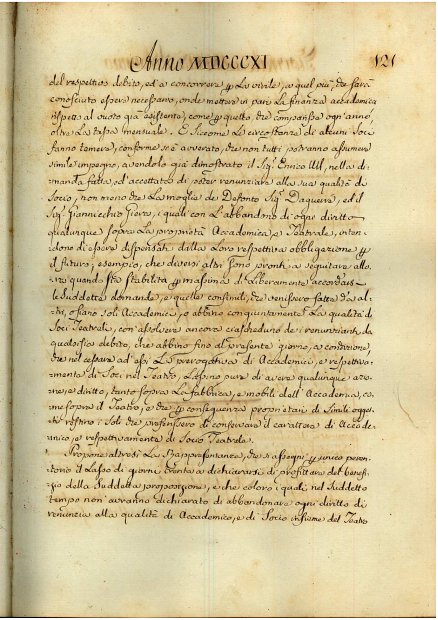 Anno MDCCCXI 121
del respettivo debito, ed a concorrere p. La vivile, a quel più, che sarà
conosciuto essere necessario, onde mettere in pari La finanza accademica
rispetto al vuoto già esistente, come p. quello, che comparisse ogn'anno,
oltre La tassa mensuale. E siccome Le circostanze di alcuni Soci
fanno temere, conforme si è avverato, che non tutti potranno assumere
simile impegno, avendolo già dimostrato il Sig. Enrico nella di-
manda fatta, ed accettata di poter renunziare alla sua qualità di
Socio, non meno che La moglie del Defonto Sig. Daguerre, ed il
Sig. Giannicchio Fiero, i quali con L'abbandono di ogni diritto
qualunque sopra La proprietà Accademica, e Teatrale, inten-
dono di essere dispensati dalla Loro respettiva obbligazione p.
il futuro; esempio, che diversi altri sono pronti a seguitare allo-
ra quando sia stabilita p. massima di Liberamente accordarsi
le suddette domande, e quelle consimili, che venissero fatte da al-
tri, o siano soli Accademici, o abbino congiuntamente La qualità di
Soci Teatrale, con assolvere ancora ciascheduno de' renunzianti da
qualsisia debito, che abbino fino al presente giorno, a condizione,
che nel cessare ad essi La prerogativa di Accademici, e respettiva-
mente di Soci nel Teatro, cessino pure di avere qualunque azio-
ne, e diritto, tanto sopra La fabbrica, e mobili dell'Accademia, co-
me sopra il Teatro, e che p. conseguenza proprietari di simili ogget-
ti restino i soli che proseguissero di conservare il carattere di Accade-
mico, e respettivamente di Socio Teatrale.
Propone altresì La Rappresentanza, che si assegni p. unico peren-
torio il Lasso di giorni trenta a dichiararsi di profittare del benefi-
zio della suddetta proposizione, e che coloro i quali nel suddetto
tempo non avranno dichiarato di abbandonare ogni diritto di
renunzia alla qualità di Accademico, e di Socio insieme del Teatro